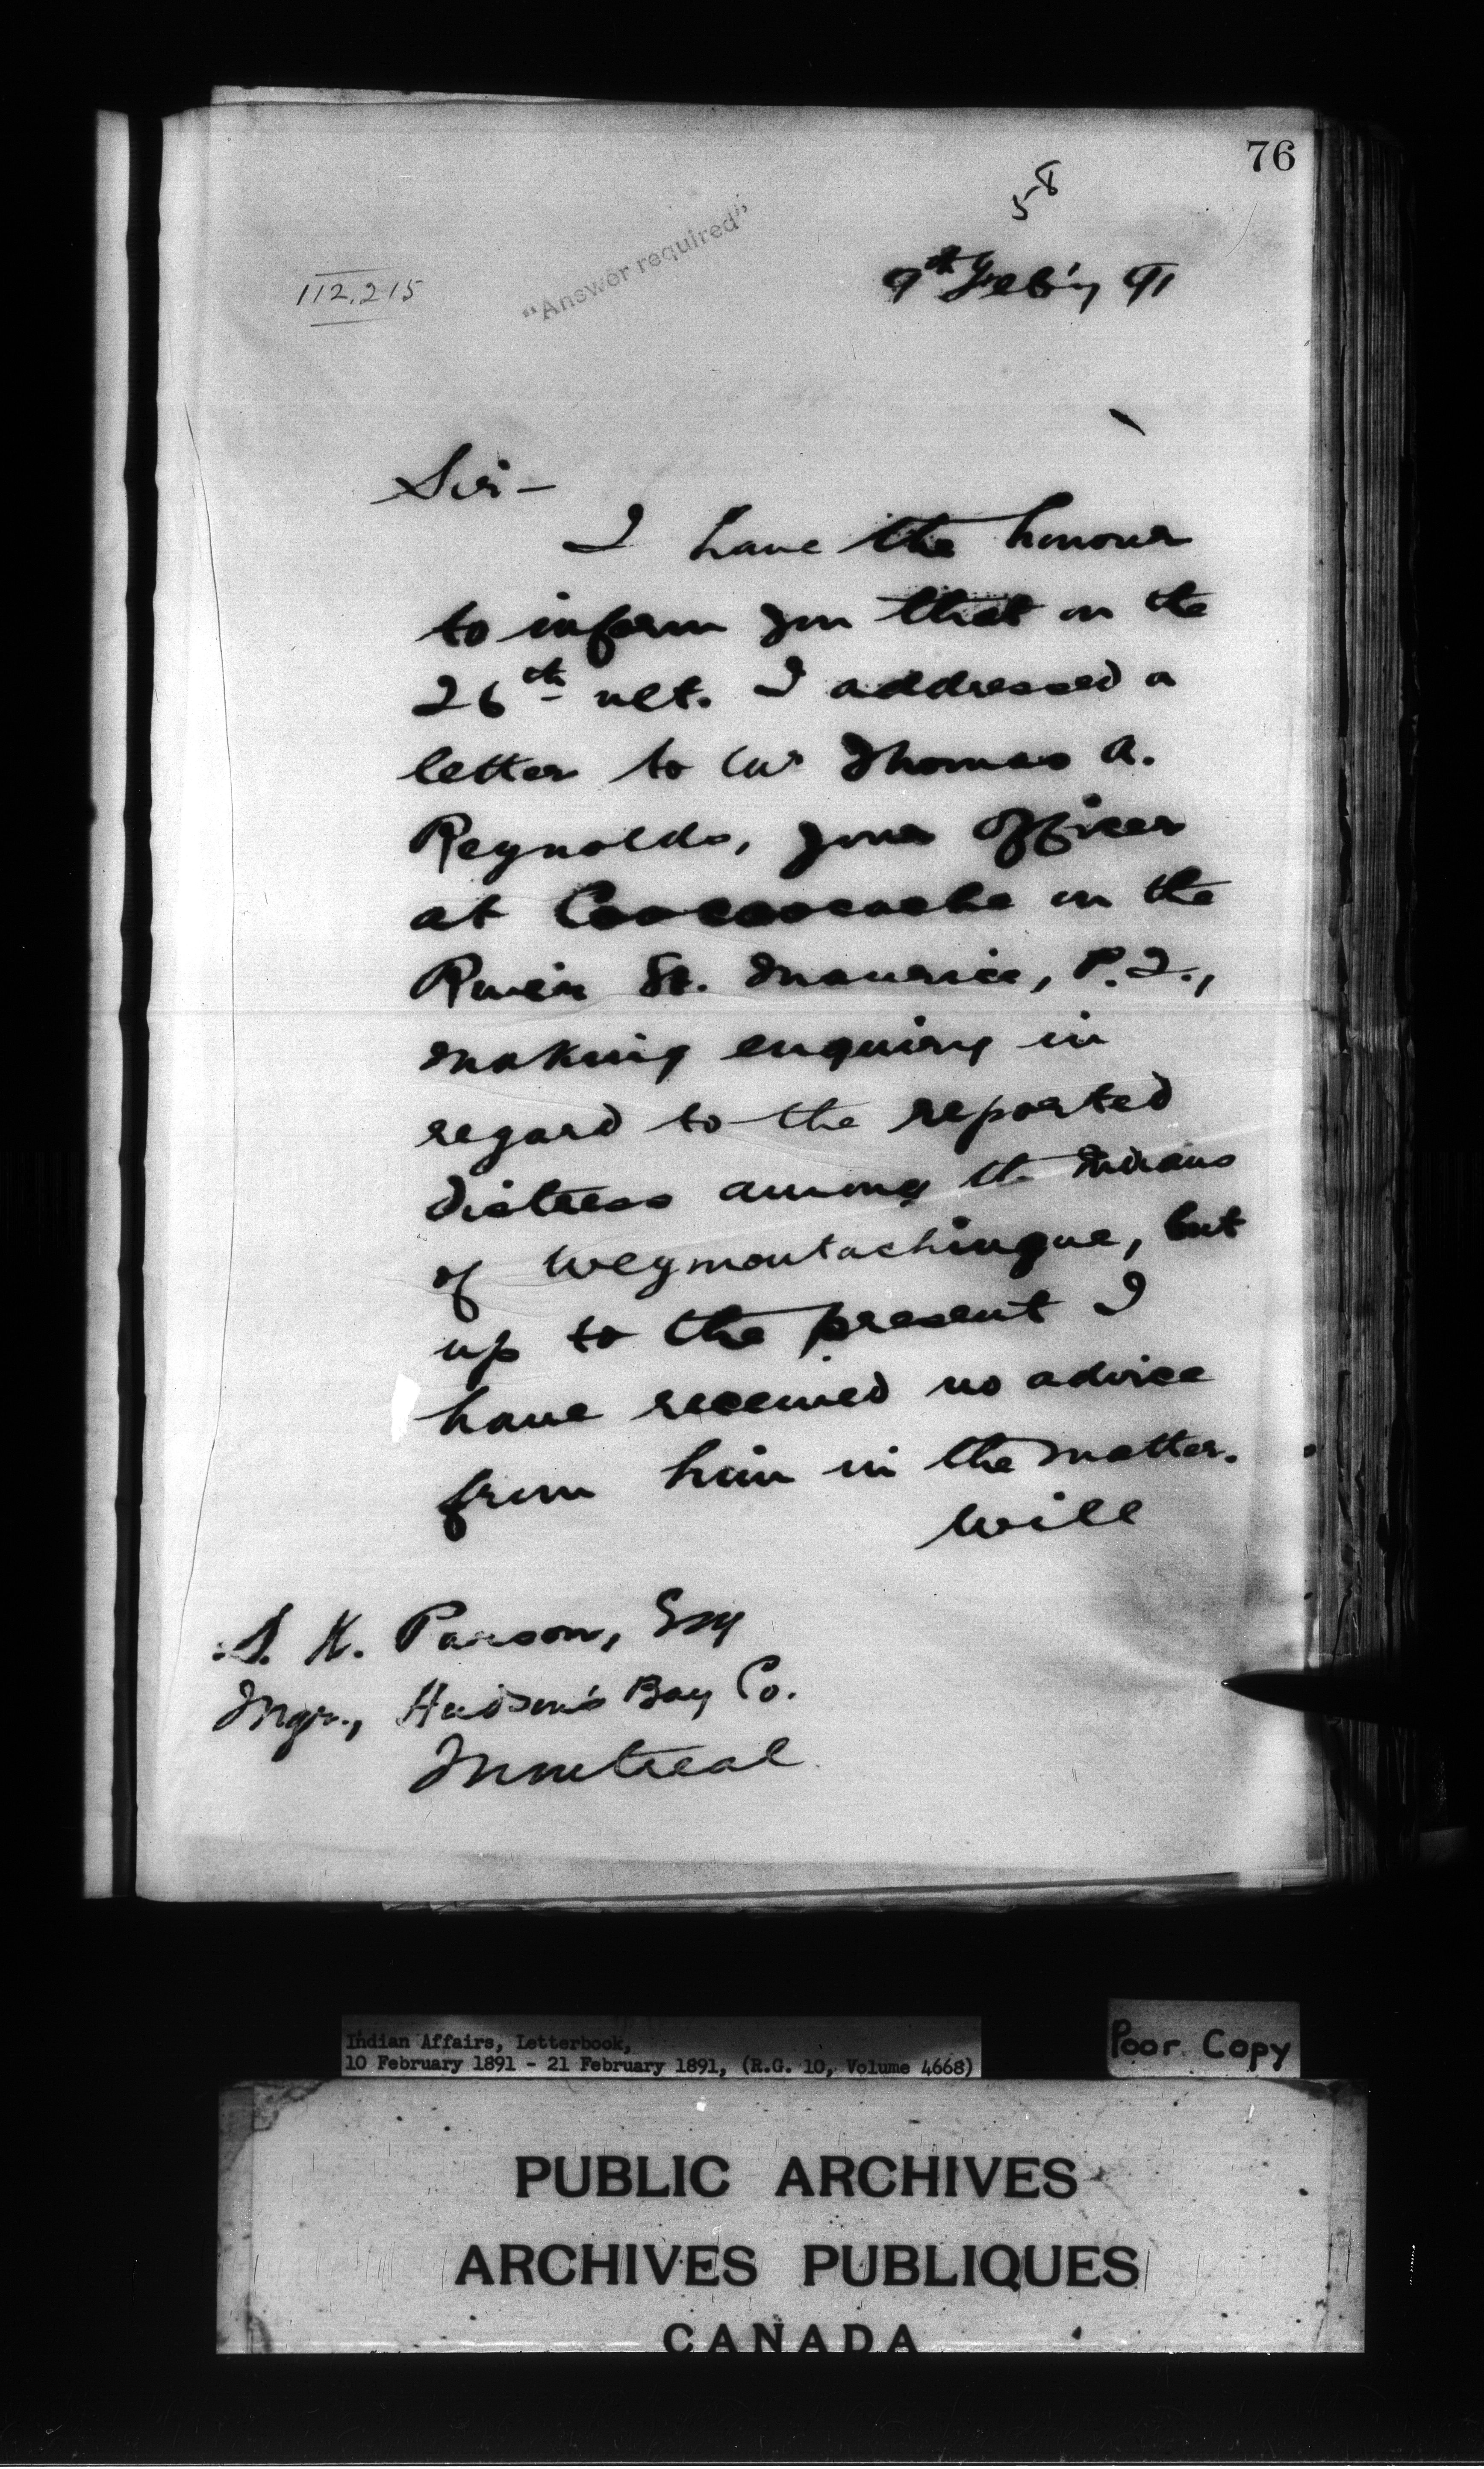 76
58
112,215
"Answer required"
9th Feb'y 91
Sir-
I have the honour
to inform you that on the
26th ult. I addressed a
letter to Mr Thomas A.
Reynolds, your Officer
at Coocoocache on the
River St. Maurice, P.Q.,
making enquiry in
regard to the reported
distress among the Indians
of Weymontachingue, but
up to the present I
have received no advice
from him in the matter.
Will
S. K. Parson, Esq
Mgr., Hudson's Bay Co.
Montreal
Indian Affairs, Letterbook,
10 February 1891 - 21 February 1891, (R.G. 10, Volume 4668)
Poor Copy
PUBLIC ARCHIVES
ARCHIVES PUBLIQUES
CANADA